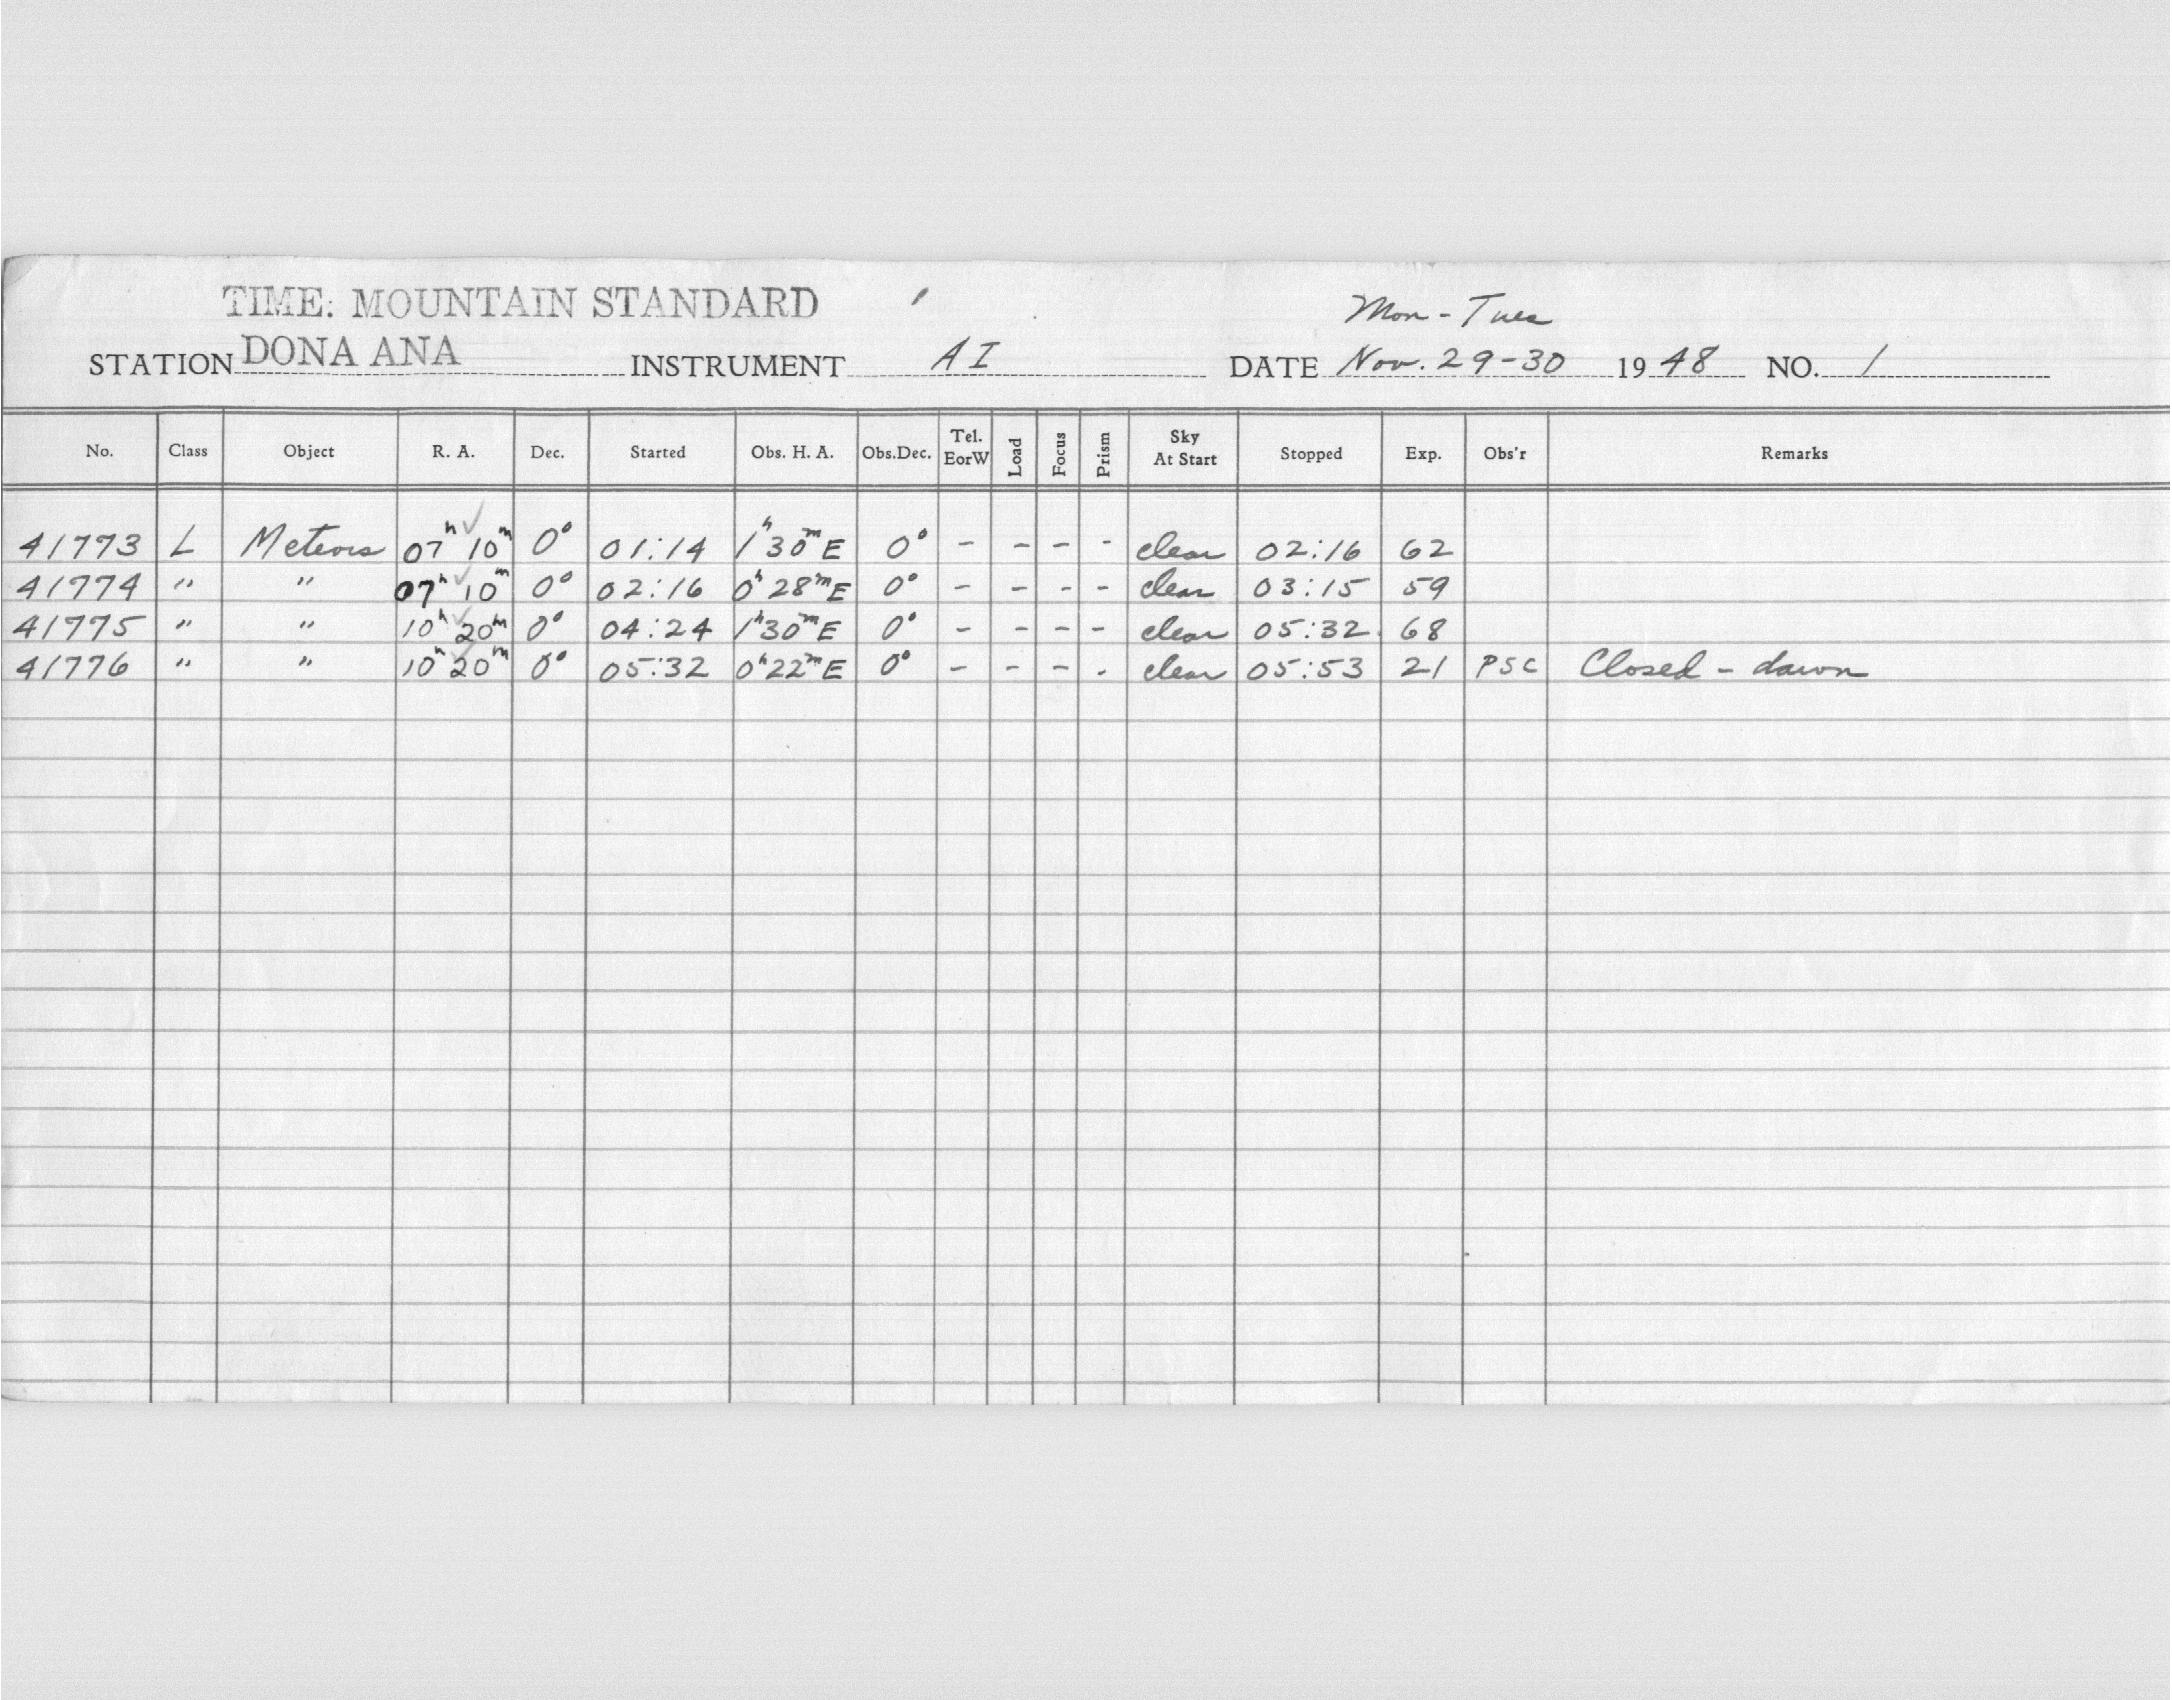 TIME: MOUNTAIN STANDARD
Mon - Tues
STATION DONA ANA INSTRUMENT AI DATE Nov. 29-30 1948 NO. 1
No. Class Object R. A. Dec. Started Obs. H. A. Obs.Dec. Tel. EorW Load Focus Prism Sky At Start Stopped Exp. Obs'r Remarks
41773 L Meteors 07h ✓ 10m 0° 01:14 1h 30m E 0° - - - - clear 02:16 62
41774 " " 07h ✓ 10m 0° 02:16 0h 28m E 0° - - - - clear 03:15 59
41775 " " 10h ✓ 20m 0° 04:24 1h 30m E 0° - - - - clear 05:32 68
41776 " " 10h ✓ 20m 0° 05:32 0h 22m E 0° - - - - clear 05:53 21 PSC Closed - dawn